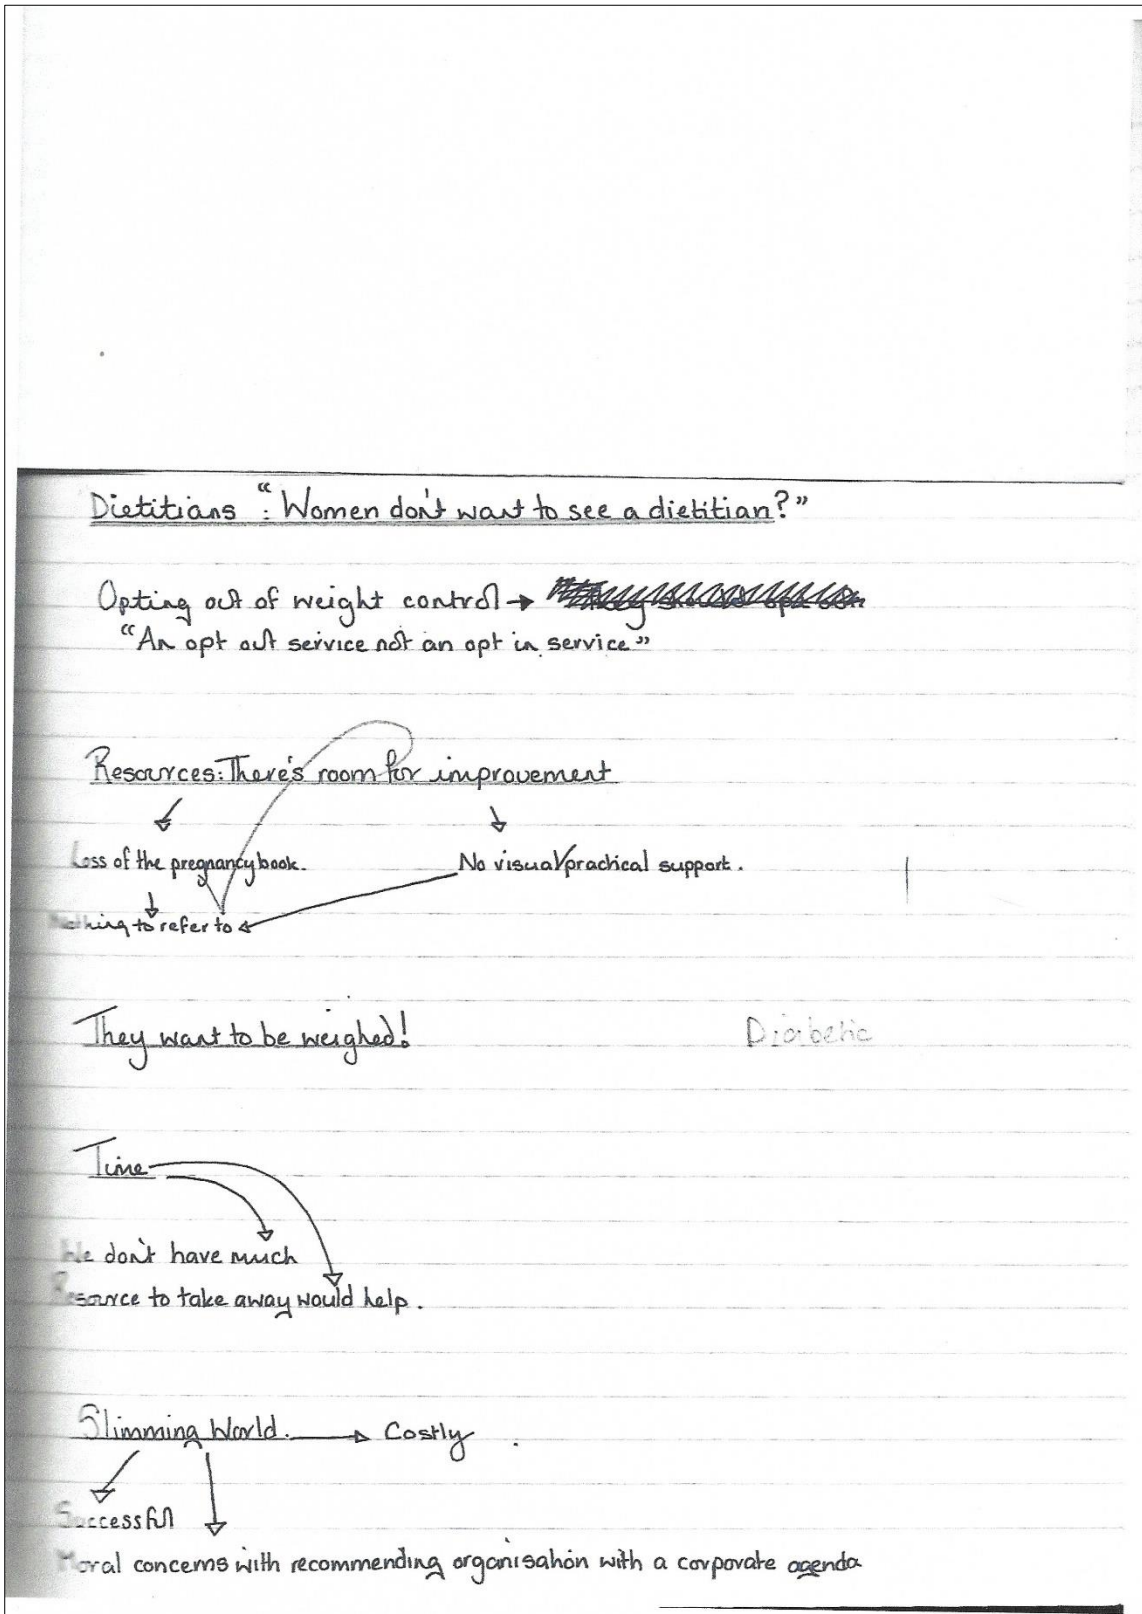 Dietitians : "Women don't want to see a dietitian?"
Opting out of weight control →
"An opt out service not an opt in service"
Resources: There's room for improvement
Loss of the pregnancy book. No visual/practical support.
Nothing to refer to
They want to be weighed! Diabetic
Time
We don't have much
Resource to take away would help.
Slimming World. → Costly
Successful
Moral concerns with recommending organisation with a corporate agenda